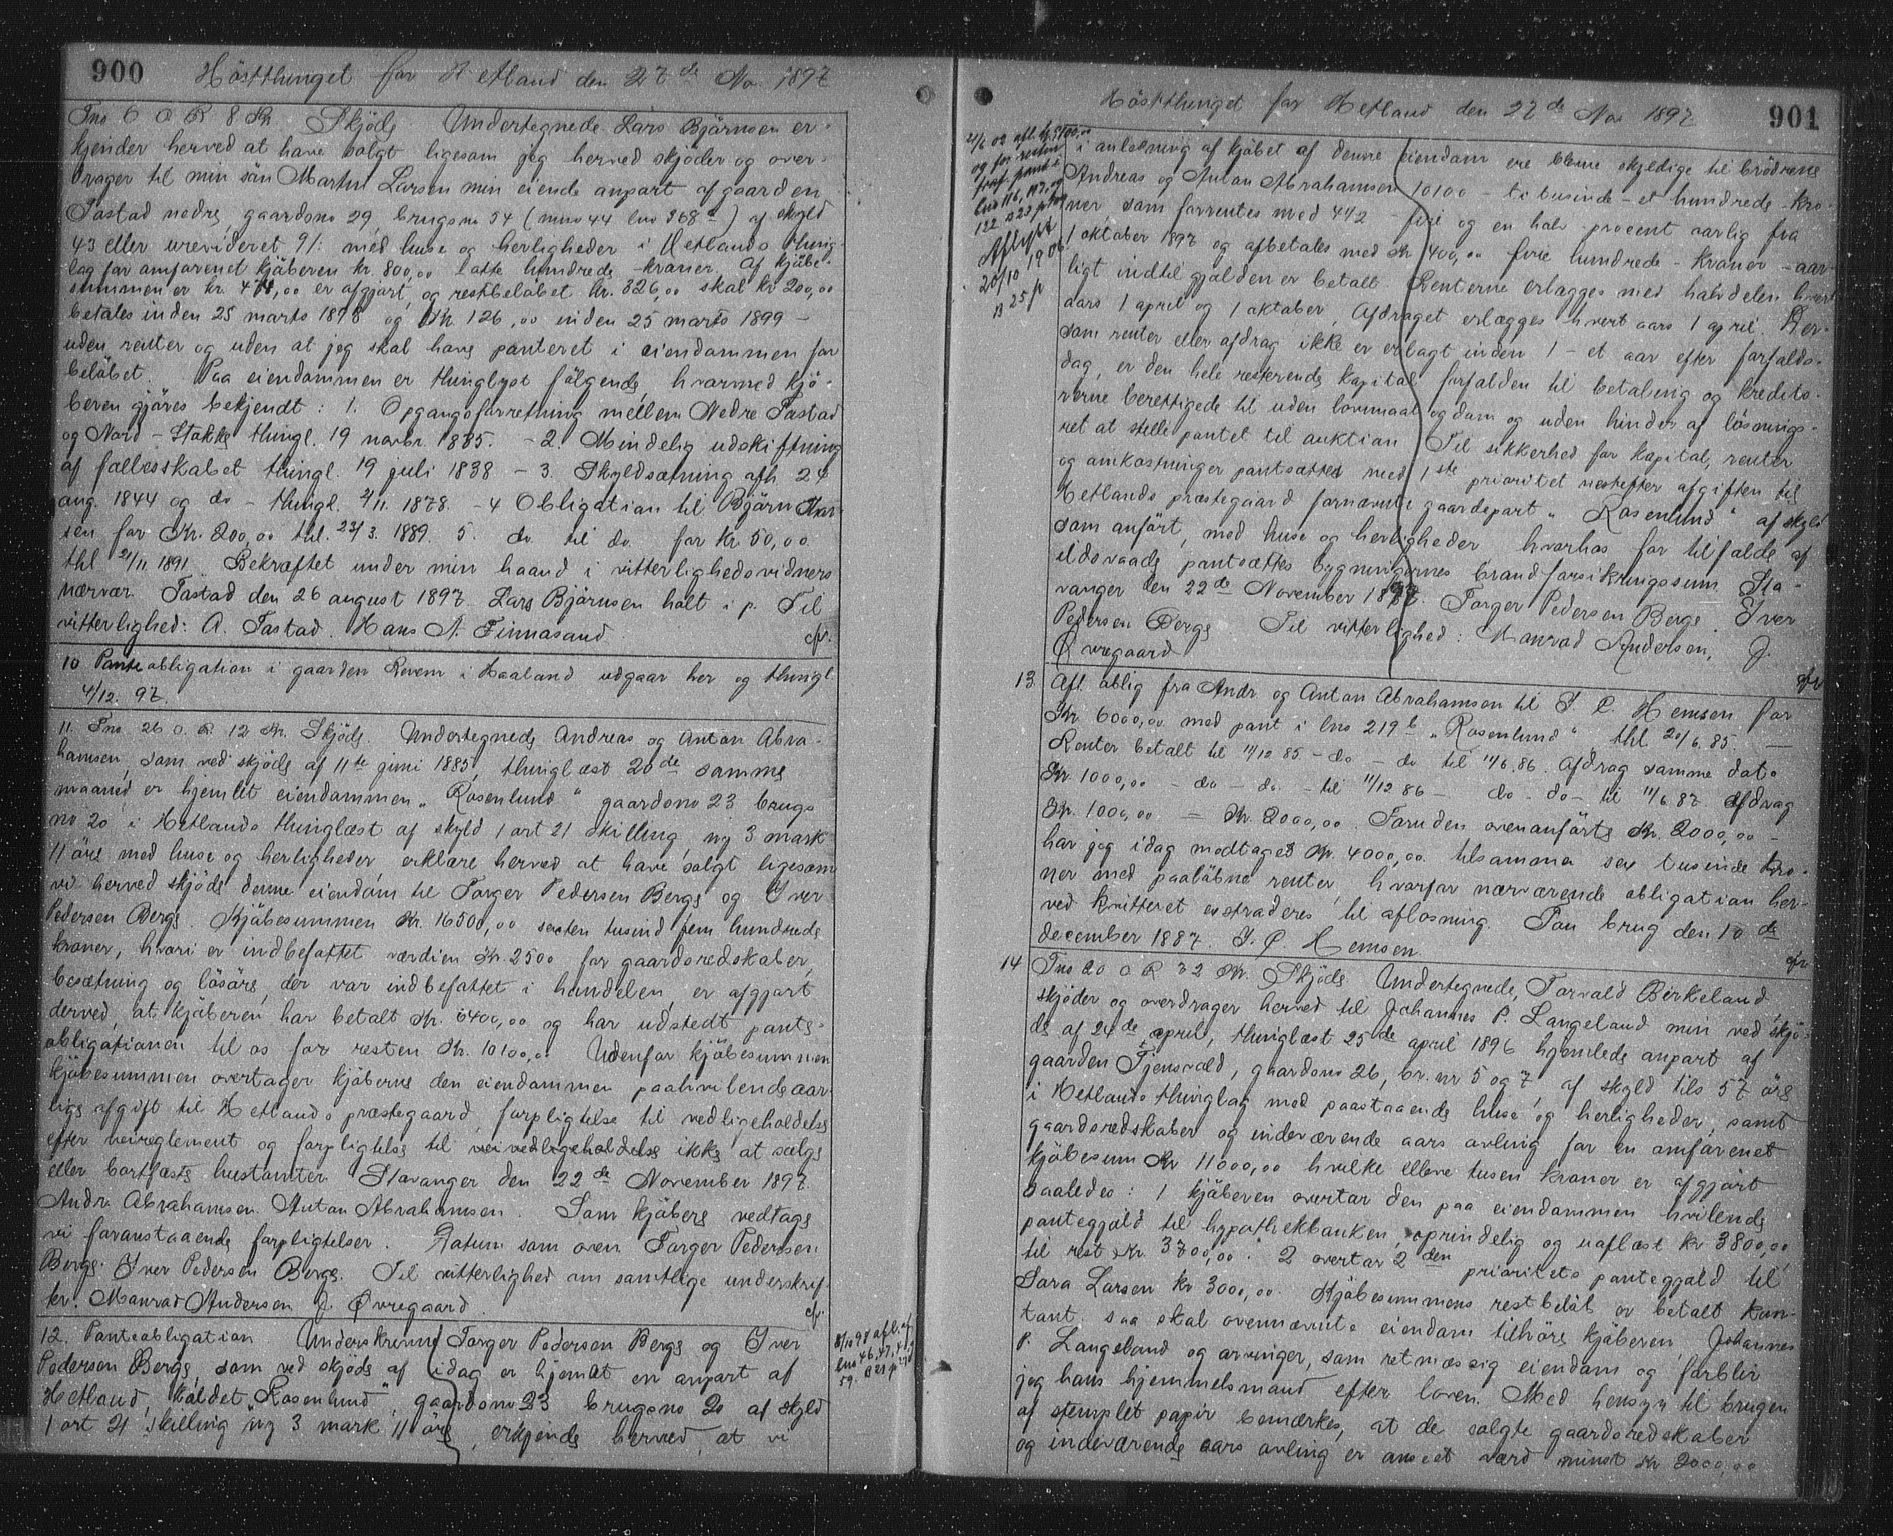 900 Höstthinget for Hetland den 27de Nov. 1897
Tns 6 O R 8 Kr. Skjöde Undertegnede Lars Björnsen er-
kjender herved at have solgt ligesom jeg herved skjöder og over-
drager til min sön Martin Larsen min eiende anpart af gaarden
Tastad nedre, gaardsno 29 brugsno 54 af skyld
43 eller urevideret 91: med huse og herligheder i Hetlands thing-
lag for omforenet kjöbesum kr. 800,00 otte hundrede kroner. Af kjöbe-
summen er kr. er afgjort, og restbelöbet kr. 326,00 skal kr 200,00
betales inden 25 marts 1898 og Kr 126,00 inden 25 marts 1899 -
uden renter og uden at jeg skal have panteret i eiendommen for
belöbet. Paa eiendommen er thinglyst fölgende, hvormed kjö-
beren gjöres bekjendt: 1. Opgangsforretning mellem Nedre Tastad
og Nord-Stokke thingl. 19 novbr. 1835. - 2 Mindelig udskiftning
af fællesskabet thingl. 19 juli 1838 - 3. Skyldsætning afh. 24
aug. 1844 og do - thingl. 4/11. 1878. - 4 Obligation til Björn
sen for Kr. 200,00 thl. 23/3. 1889. 5. do til do for kr. 50,00
thl 21/11 1891. Bekræftet under min haand i vitterlighedsvidners
nærvær. Tastad den 26 august 1897. Lars Björnsen holt i p. Til
vitterlighed: A. Tastad. Hans A. Finnasand.
10 Panteobligation i gaarden Revem i Haaland udgaar her og thingl
4/12. 97.
11. Tns. 26 O. R 12 Kr. Skjöde. Undertegnede Andreas og Anton Abra-
hamsen, som ved skjöde af 11te juni 1885, thinglæst 20de samme
maaned er hjemlet eiendommen "Rosenlund" gaardsno 23 brugs
no 20 i Hetlands thinglæst af skyld 1 ort 21 skilling, ny 3 mark
11 öre med huse og herligheder erklære herved at have solgt ligesom
vi herved skjöde denne eiendom til Torger Pedersen Berge og Iver
Pedersen Berge. Kjöbesummen Kr. 16500,00 sexten tusind fem hundrede
kroner, hvori er indbefattet værdien Kr. 2500 for gaardsredskaber,
besætning og lösöre, der var indbefattet i handelen, er afgjort
derved, at kjöberen har betalt Kr. 6400,00 og har udstedt pante-
obligationen til os for resten Kr. 10100,00 Udenfor kjöbesummen
kjöbesummen overtager kjöberne den eiendommen paahvilende aar-
lige afgift til Hetlands præstegaard, forpligtelse til vedligeholdelse
efter veireglement og forpligtelse til veivedligeholdelse ikke at sælge
eller bortfæste hustomter Stavanger den 22de November 1897.
Andr. Abrahamsen. Anton Abrahamsen. Som kjöbere vedtage
vi foranstaaende forpligtelser. Datum som oven Torger Pedersen
Berge. Iver Pedersen Berge. Til vitterlighed om samtlige underskrif-
ter. Monrad Andersen J. Øvregaard.
12. Panteobligation Underskrevne Torger Pedersen Berge og Iver
Pedersen Berge, som ved skjöde af idag er hjemlet en anpart af
Hetland, kaldet "Rosenlund", gaardsno 23 brugsno 20 af skyld
1 ort 21 skilling ny 3 mark 11 öre, erkjende herved, at vi
Höstthinget for Hetland den 27de Nov 1897 901
i anledning af kjöbet af denne eiendom ere blevne skyldige til brödrene
Andreas og Anton Abrahamsen 10100 - ti tusinde - et hundrede - kro-
ner som forrentes med 4 1/2 - fire og en halv procent aarlig fra
1 oktober 1897 og afbetales med Kr 400,00 fire hundrede - kroner - aar-
ligt indtil gjælden er betalt. Renterne erlægges med halvdelen hvert
aars 1 april og 1 oktober, Afdraget erlægges hvert aars 1 april. Der-
som renter eller afdrag ikke er erlagt inden 1 - et aar efter forfalds-
dag, er den hele resterende kapital forfalden til betaling og kredito-
rerne berettigede til uden lovmaal og dom og uden hinder af lösnings-
ret at stille pantet til auktion. Til sikkerhed for kapital, renter
og omkostninger pantsættes med 1ste prioritet næstefter afgiften til
Hetlands præstegaard fornævnte gaardepart "Rosenlund" af skyld
som anfört, med huse og herligheder, hvorhos for tilfælde af
ildsvaade pantsættes bygningernes brandforsikringssum Sta-
vanger den 22de November 1897. Torger Pedersen Berge. Iver
Pedersen Berge Til vitterlighed: Monrad Andersen, J.
Øvregaard
Aflyst
20/10 1906
13 Afl. oblig fra Andr. og Anton Abrahamsen til for
Kr. 6000,00 med pant i lno 219 "Rosenlund" thl 20/6.85.
Renter betalt til 11/12 85 - do - do til 11/6.86. Afdrag samme dato
Kr 1000,00 - do - do - til 11/12 86 - do - do - til 11/6 87 afdrag
Kr. 1000,00 = Kr. 2000,00 Foruden ovenanförte Kr. 2000,00 -
har jeg idag modtaget Kr. 4000,00 tilsammen sex tusinde kro-
ner med paalöbne renter, hvorfor nærværende obligation her-
ved kvitteret extraderes til aflösning. Tau brug den 10de
december 1887.
14 Tns 20 O R 32 Kr. Skjöde Undertegnede, Torvald Birkeland
skjöder og overdrager herved til Johannes P. Langeland min ved skjö-
de af 24de april, thinglæst 25de april 1896 hjemlede anpart af
gaarden Tjensvold, gaardsno 26, br. nr 5 og 7 af skyld tils 57 öre
i Hetlands thinglag med paastaaende huse og herligheder, samt
gaardsredskaber og indeværende aars avling for en omforenet
kjöbesum Kr 11000,00 hvilke elleve tusen kroner er afgjort
saaledes: 1 kjöberen overtar den paa eiendommen hvilende
pantegjæld til hypothekbanken, oprindelig og uaflæst kr 3800,00
til rest Kr. 3700,00. 2 overtar 2den prioritets pantegjæld til
Sara Larsen kr 3000,00. Kjöbesummens restbelöb er betalt kon-
tant, saa skal ovennævnte eiendom tilhöre kjöberen, Johannes
P. Langeland og arvinger, som retmæssig eiendom og forblir
jeg hans hjemmelsmand efter loven. Med hensyn til brugen
af stemplet papir bemærkes, at de solgte gaardsredskaber
og indeværende aars avling er anseet værd mindst Kr 2000,00